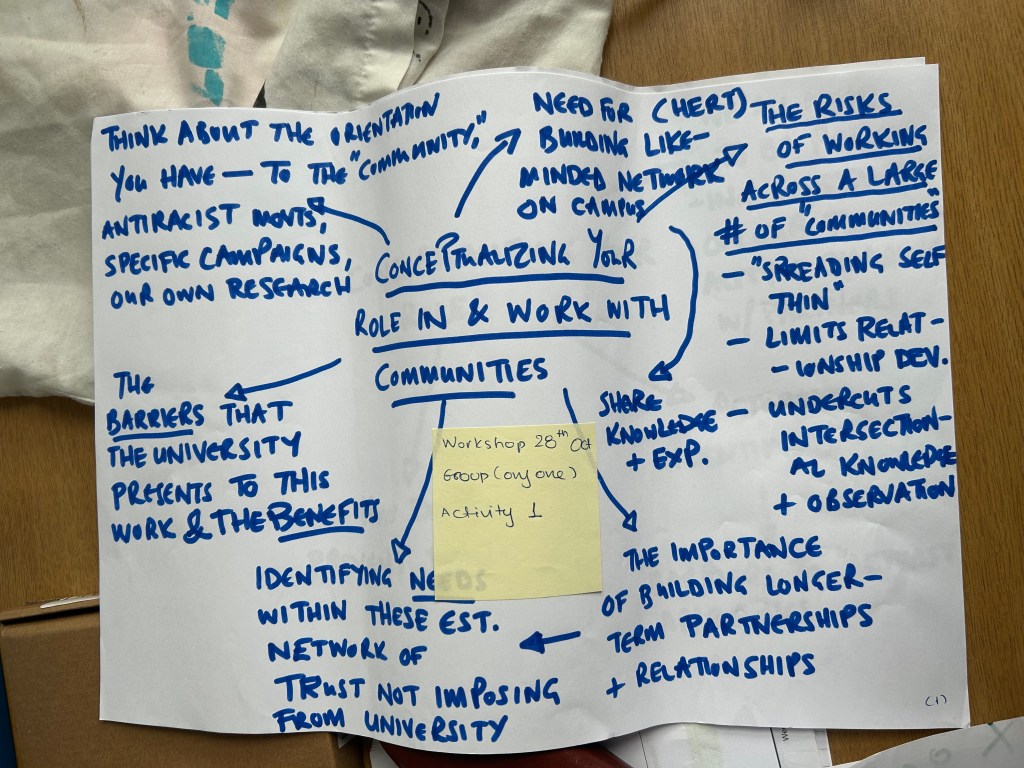 CONCEPTUALIZING YOUR
ROLE IN & WORK WITH
COMMUNITIES
THINK ABOUT THE ORIENTATION
YOU HAVE — TO THE "COMMUNITY,"
ANTIRACIST MOV'TS,
SPECIFIC CAMPAIGNS,
OUR OWN RESEARCH
NEED FOR (HERT)
BUILDING LIKE-
MINDED NETWORK
ON CAMPUS
THE RISKS
OF WORKING
ACROSS A LARGE
# OF "COMMUNITIES"
- "SPREADING SELF
THIN"
- LIMITS RELAT-
- IONSHIP DEV.
- UNDERCUTS
INTERSECTION-
AL KNOWLEDGE
+ OBSERVATION
SHARE
KNOWLEDGE
+ EXP.
THE
BARRIERS THAT
THE UNIVERSITY
PRESENTS TO THIS
WORK & THE BENEFITS
Workshop 28th Oct
Group (any one)
Activity 1
THE IMPORTANCE
OF BUILDING LONGER-
TERM PARTNERSHIPS
+ RELATIONSHIPS
IDENTIFYING NEEDS
WITHIN THESE EST.
NETWORK OF
TRUST NOT IMPOSING
FROM UNIVERSITY
(1)